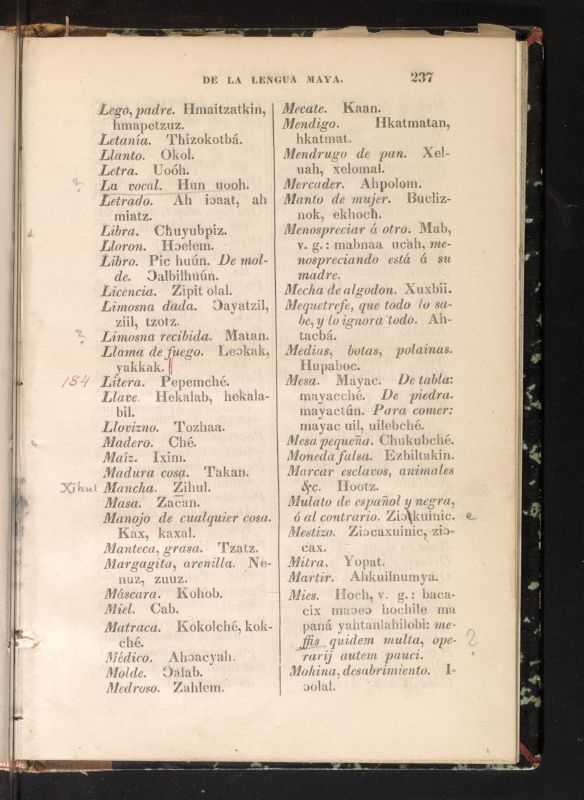 DE LA LENGUA MAYA. 237
Lego, padre. Hmaitzatkin,
hmapetzuz.
Letanía. Thizokotbá.
Llanto. Okol.
Letra. Uoóh.
? La vocal. Hun uooh.
Letrado. Ah iɔaat, ah
miatz.
Libra. Chuyubpiz.
Lloron. Hɔelem.
Libro. Pic huún. De mol-
de. Ɔalbilhuún.
Licencia. Zipit olal.
Limosna dada. Ɔayatzil,
ziil, tzotz.
? Limosna recibida. Matan.
Llama de fuego. Leɔkak,
yakkak.
184 Litera. Pepemché.
Llave. Hekalab, hekala-
bil.
Llovizno. Tozhaa.
Madero. Ché.
Maíz. Ixim.
Madura cosa. Takan.
Xihul Mancha. Zihul.
Masa. Zacan.
Manojo de cualquier cosa.
Kax, kaxal.
Manteca, grasa. Tzatz.
Margagita, arenilla. Ne-
nuz, zuuz.
Máscara. Kohob.
Miel. Cab.
Matraca. Kokolché, kok-
ché.
Médico. Ahɔacyah.
Molde. Ɔalab.
Medroso. Zahlem.
Mecate. Kaan.
Mendigo. Hkatmatan,
hkatmat.
Mendrugo de pan. Xel-
uah, xelomal.
Mercader. Ahpolom.
Manto de mujer. Bucliz-
nok, ekhoch.
Menospreciar á otro. Mab,
v. g.: mabnaa ucah, me-
nospreciando está á su
madre.
Mecha de algodon. Xuxbii.
Mequetrefe, que todo lo sa-
be, y lo ignora todo. Ah-
tacbá.
Medias, botas, polainas.
Hupaboc.
Mesa. Mayac. De tabla:
mayacché. De piedra.
mayactún. Para comer:
mayac uil, uilebché.
Mesa pequeña. Chukubché.
Moneda falsa. Ezbiltakin.
Marcar esclavos, animales
&c. Hootz.
Mulato de español y negra,
ó al contrario. Ziɔkuinic. e
Mestizo. Ziɔcaxuinic, ziɔ-
cax.
Mitra. Yopat.
Martir. Ahkuilnumya.
Mies. Hoch, v. g.: baca-
cix maɔeɔ hochile ma
paná yahtanlahilobi: me-
ffis quidem multa, ope-
rarij autem pauci. ?
Mohina, desabrimiento. I-
ɔolal.